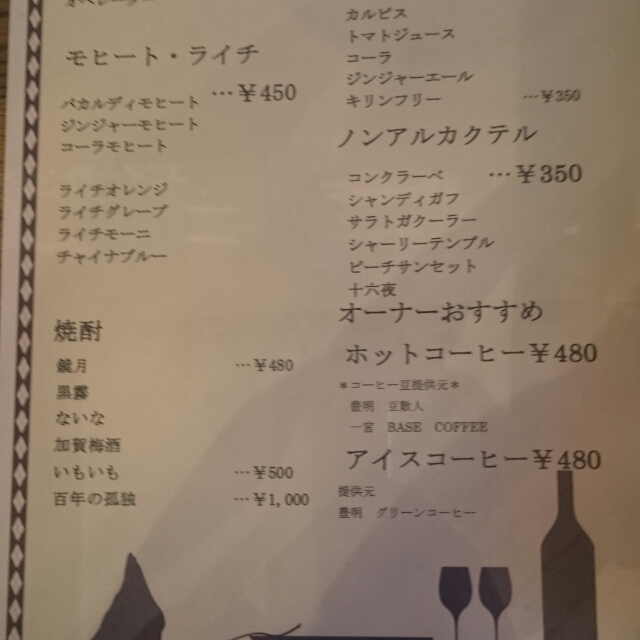 モヒート・ライチ
…￥450
バカルディモヒート
ジンジャーモヒート
コーラモヒート
ライチオレンジ
ライチグレープ
ライチモーニ
チャイナブルー
焼酎
鏡月 …￥480
黒霧
ないな
加賀梅酒
いもいも …￥500
百年の孤独 …￥1,000
カルピス
トマトジュース
コーラ
ジンジャーエール
キリンフリー …￥350
ノンアルカクテル
コンクラーベ …￥350
シャンディガフ
サラトガクーラー
シャーリーテンプル
ピーチサンセット
十六夜
オーナーおすすめ
ホットコーヒー￥480
＊コーヒー豆提供元＊
豊明 豆散人
一宮 BASE COFFEE
アイスコーヒー￥480
提供元
豊明 グリーンコーヒー